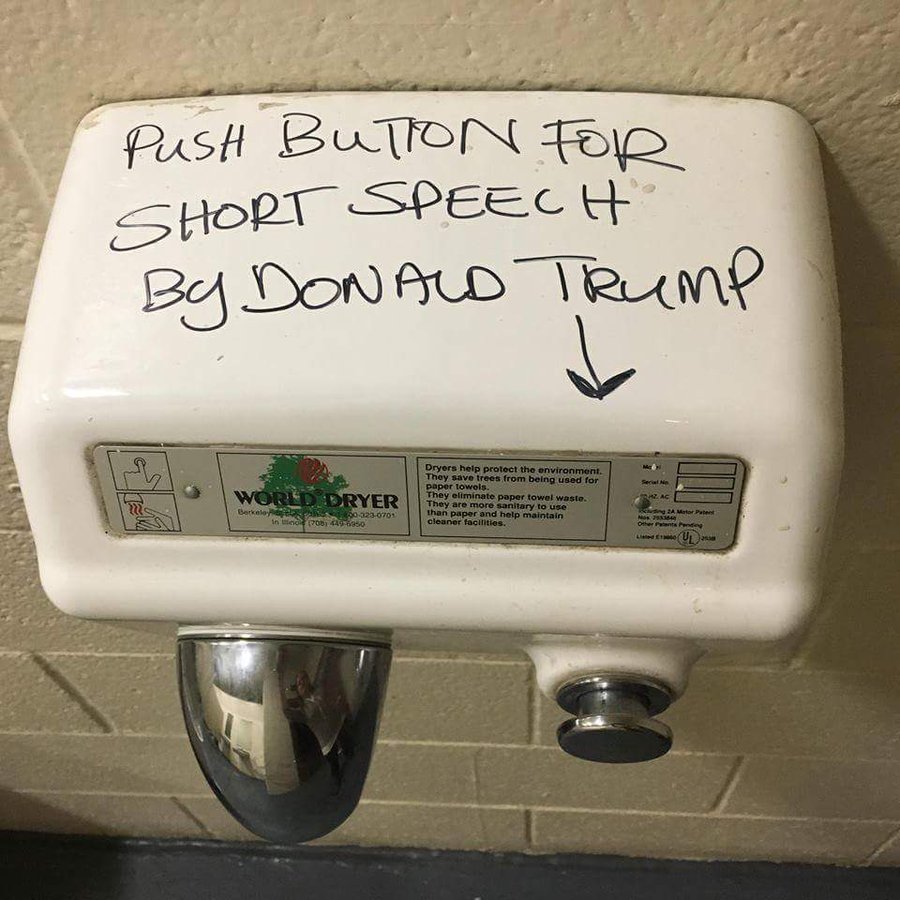 PUSH BUTTON FOR
SHORT SPEECH
By DONALD TRUMP
WORLD DRYER
Berkeley
In Illinois (708) 449-6950
Dryers help protect the environment.
They save trees from being used for
paper towels.
They eliminate paper towel waste.
They are more sanitary to use
than paper and help maintain
cleaner facilities.
Serial No.
HZ, AC
Including 2A Motor Patent
Other Patents Pending
UL